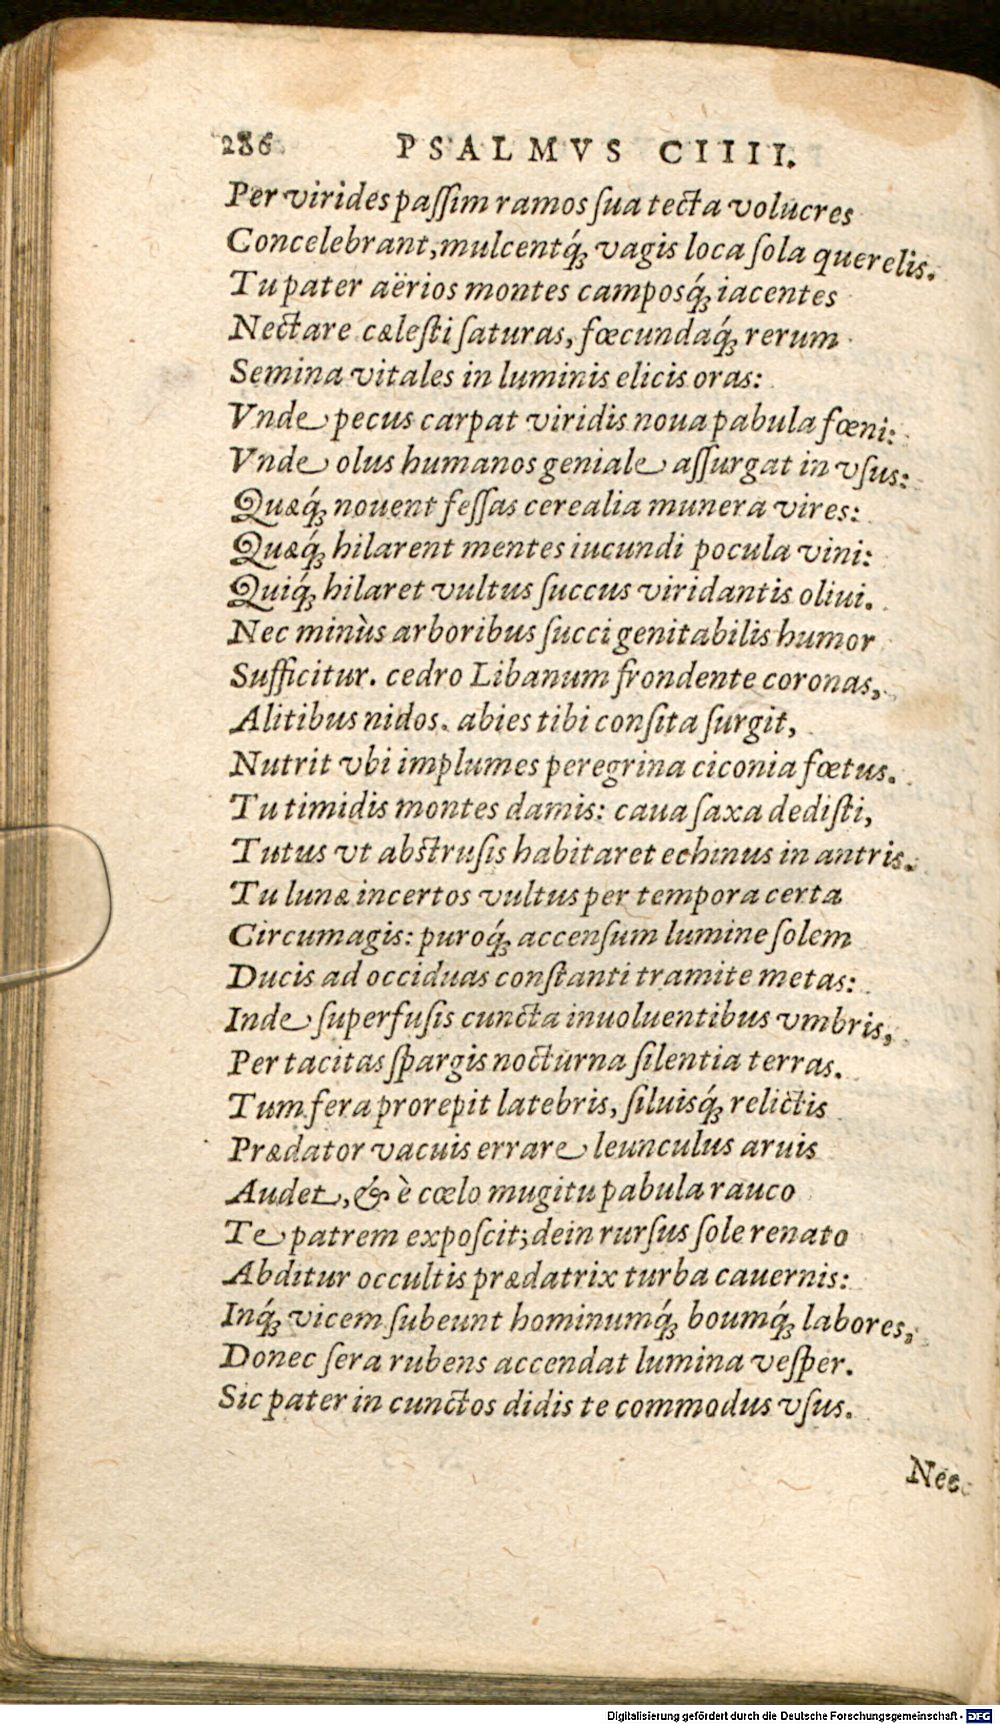 286 PSALMVS CIIII.
Per virides paſſim ramos ſua tecta volucres
Concelebrant, mulcentq́ꝫ vagis loca ſola querelis.
Tu pater aërios montes camposq́ꝫ iacentes
Nectare cæleſti ſaturas, fœcundaq́ꝫ rerum
Semina vitales in luminis elicis oras:
Vnde pecus carpat viridis noua pabula fœni:
Vnde olus humanos geniale aſſurgat in vſus:
Quæq́ꝫ nouent feſſas cerealia munera vires:
Quæq́ꝫ hilarent mentes iucundi pocula vini:
Quiq́ꝫ hilaret vultus ſuccus viridantis oliui.
Nec minùs arboribus ſucci genitabilis humor
Sufficitur. cedro Libanum frondente coronas,
Alitibus nidos. abies tibi conſita ſurgit,
Nutrit vbi implumes peregrina ciconia fœtus.
Tu timidis montes damis: caua ſaxa dediſti,
Tutus vt abſtruſis habitaret echinus in antris.
Tu lunæ incertos vultus per tempora certa
Circumagis: puroq́ꝫ accenſum lumine ſolem
Ducis ad occiduas conſtanti tramite metas:
Inde ſuperfuſis cuncta inuoluentibus vmbris,
Per tacitas ſpargis nocturna ſilentia terras.
Tum fera prorepit latebris, ſiluisq́ꝫ relictis
Prædator vacuis errare leunculus aruis
Audet, & è cœlo mugitu pabula rauco
Te patrem expoſcit; dein rurſus ſole renato
Abditur occultis prædatrix turba cauernis:
Inq́ꝫ vicem ſubeunt hominumq́ꝫ boumq́ꝫ labores,
Donec ſera rubens accendat lumina veſper.
Sic pater in cunctos didis te commodus vſus.
Nec
Digitalisierung gefördert durch die Deutsche Forschungsgemeinschaft - DFG